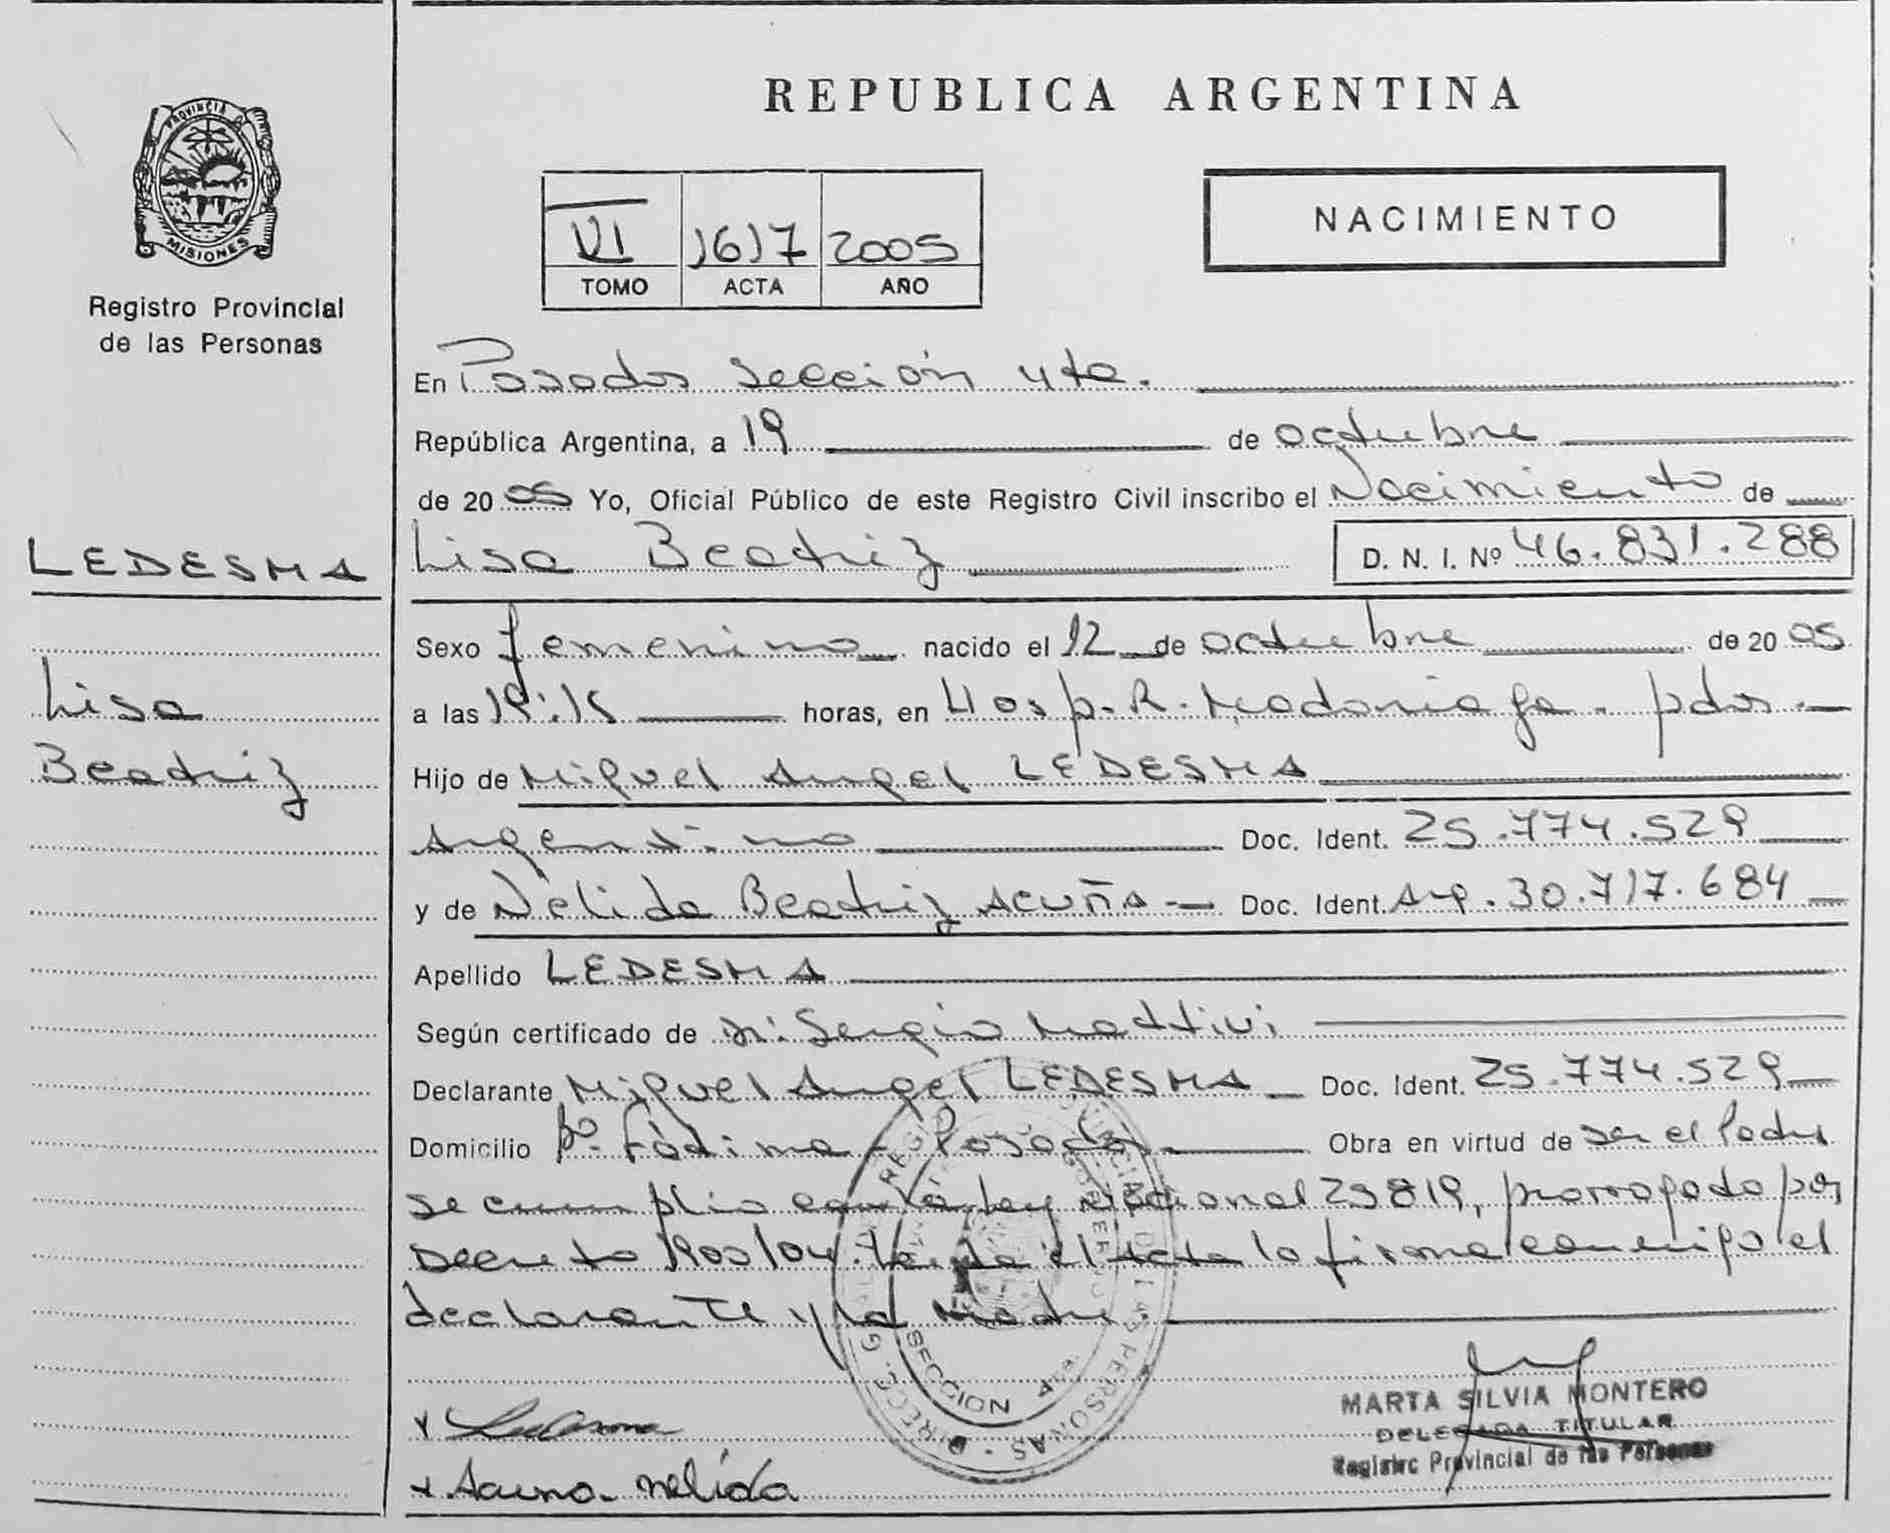 PROVINCIA DE
MISIONES
Registro Provincial
de las Personas
LEDESMA
Lisa
Beatriz
REPUBLICA ARGENTINA
VI 1617 2005
TOMO ACTA AÑO
NACIMIENTO
En Posadas Sección 4ta.
República Argentina, a 19 de octubre
de 20 05 Yo, Oficial Público de este Registro Civil inscribo el Nacimiento de
Lisa Beatriz D. N. I. Nº 46.831.288
Sexo femenino nacido el 12 de octubre de 20 05
a las 19:15 horas, en Hosp. R. Madariaga - pdas -
Hijo de Miguel Angel LEDESMA
Argentino Doc. Ident. 25.774.529
y de Nélida Beatriz ACUÑA - Doc. Ident. Arg. 30.717.684
Apellido LEDESMA
Según certificado de Dr: Sergio Mattivi
Declarante Miguel Angel LEDESMA Doc. Ident. 25.774.529
Domicilio Bº. Fátima - Posadas Obra en virtud de ser el Padre
se cumplio con la ley nacional 25819, prorrogado por
Decreto 1900/04. Leída el Acta la firma conmigo el
declarante y la Madre.
SECCION
MARTA SILVIA MONTERO
DELEGADA TITULAR
Registro Provincial de las Personas
x Acuna Nelida